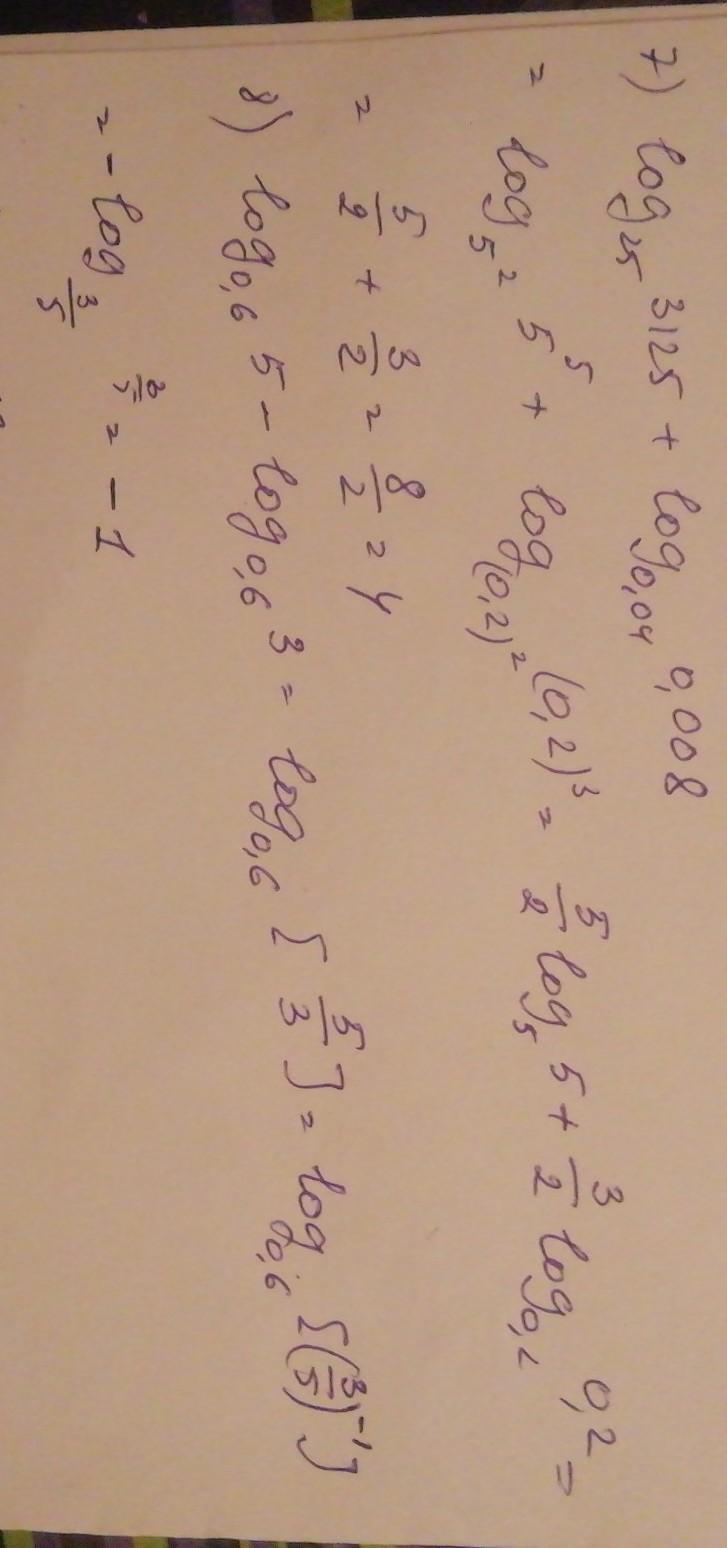 7) log₂₅ 3125 + log₀,₀₄ 0,008
= log₅² 5⁵ + log₍₀,₂₎² (0,2)³ = 5/2 log₅ 5 + 3/2 log₀,₂ 0,2 =
= 5/2 + 3/2 = 8/2 = 4
8) log₀,₆ 5 - log₀,₆ 3 = log₀,₆ [5/3] = log₀,₆ [(3/5)⁻¹]
= - log_{3/5} 3/5 = - 1